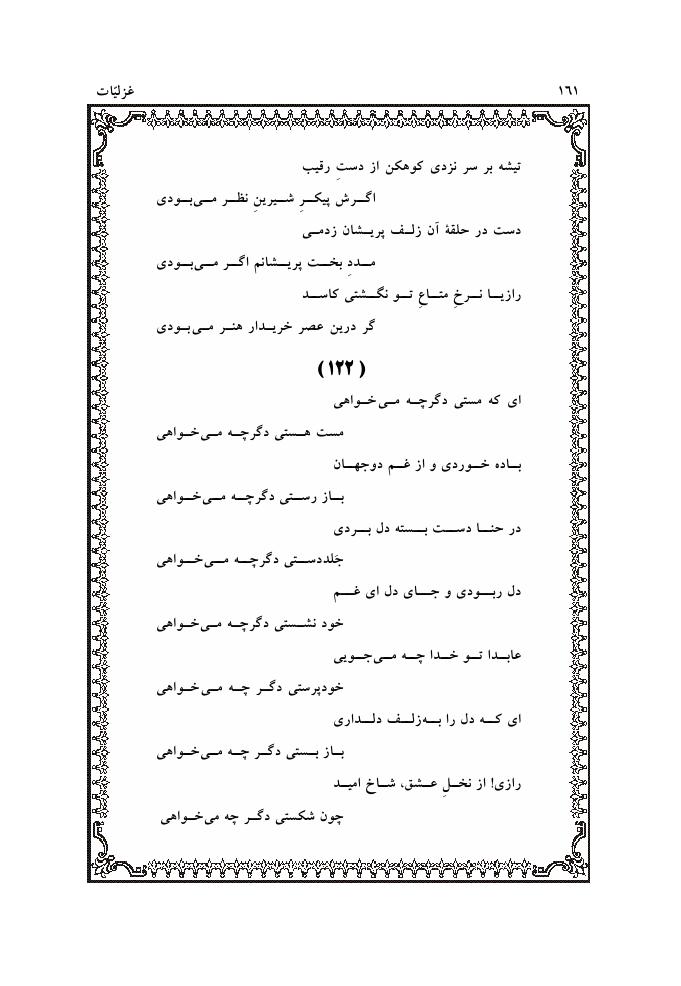 ١٦١ غزلیّات
تیشه بر سر نزدی کوهکن از دستِ رقیب
اگرش پیکرِ شیرینِ نظر می‌بودی
دست در حلقۀ آن زلف پریشان زدمی
مددِ بخت پریشانم اگر می‌بودی
رازیا نرخِ متاعِ تو نگشتی کاسد
گر درین عصر خریدار هنر می‌بودی
(١٢٢)
ای که مستی دگرچه می‌خواهی
مست هستی دگرچه می‌خواهی
باده خوردی و از غم دوجهان
باز رستی دگرچه می‌خواهی
در حنا دست بسته دل بردی
جَلددستی دگرچه می‌خواهی
دل ربودی و جای دل ای غم
خود نشستی دگرچه می‌خواهی
عابدا تو خدا چه می‌جویی
خودپرستی دگر چه می‌خواهی
ای که دل را به‌زلف دلداری
باز بستی دگر چه می‌خواهی
رازی! از نخلِ عشق، شاخ امید
چون شکستی دگر چه می‌خواهی